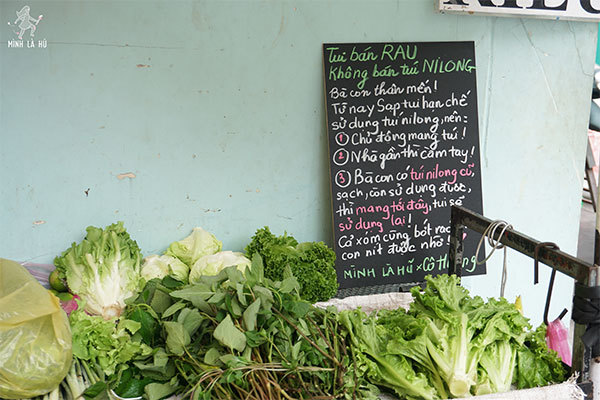 MÌNH LÀ HÚ
Tui bán RAU
Không bán túi NILONG
Bà con thân mến!
Từ nay Sạp tui hạn chế
sử dụng túi nilong, nên:
① Chủ động mang túi!
② Nhà gần thì cầm tay!
③ Bà con có túi nilong cũ,
sạch, còn sử dụng được,
thì mang tới đây, tui sẽ
sử dụng lại!
Cả xóm cùng bớt rác
con nít được nhờ!
MÌNH LÀ HÚ x Cô